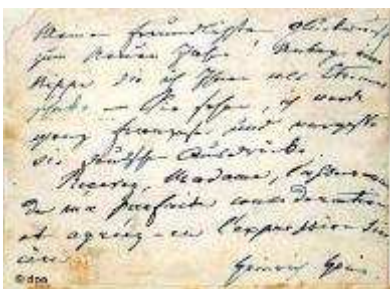 Meinen freundlichsten Glückwunsch
zum neuen Jahr!
die ich Ihnen als
— Sie sehen, ich werde
ganz Franzose und vergesse
die deutschen Ausdrücke.
Recevez, Madame, l'assurance
de ma parfaite consideration
et agréez-en l'expression
Heinrich Heine
©dpa